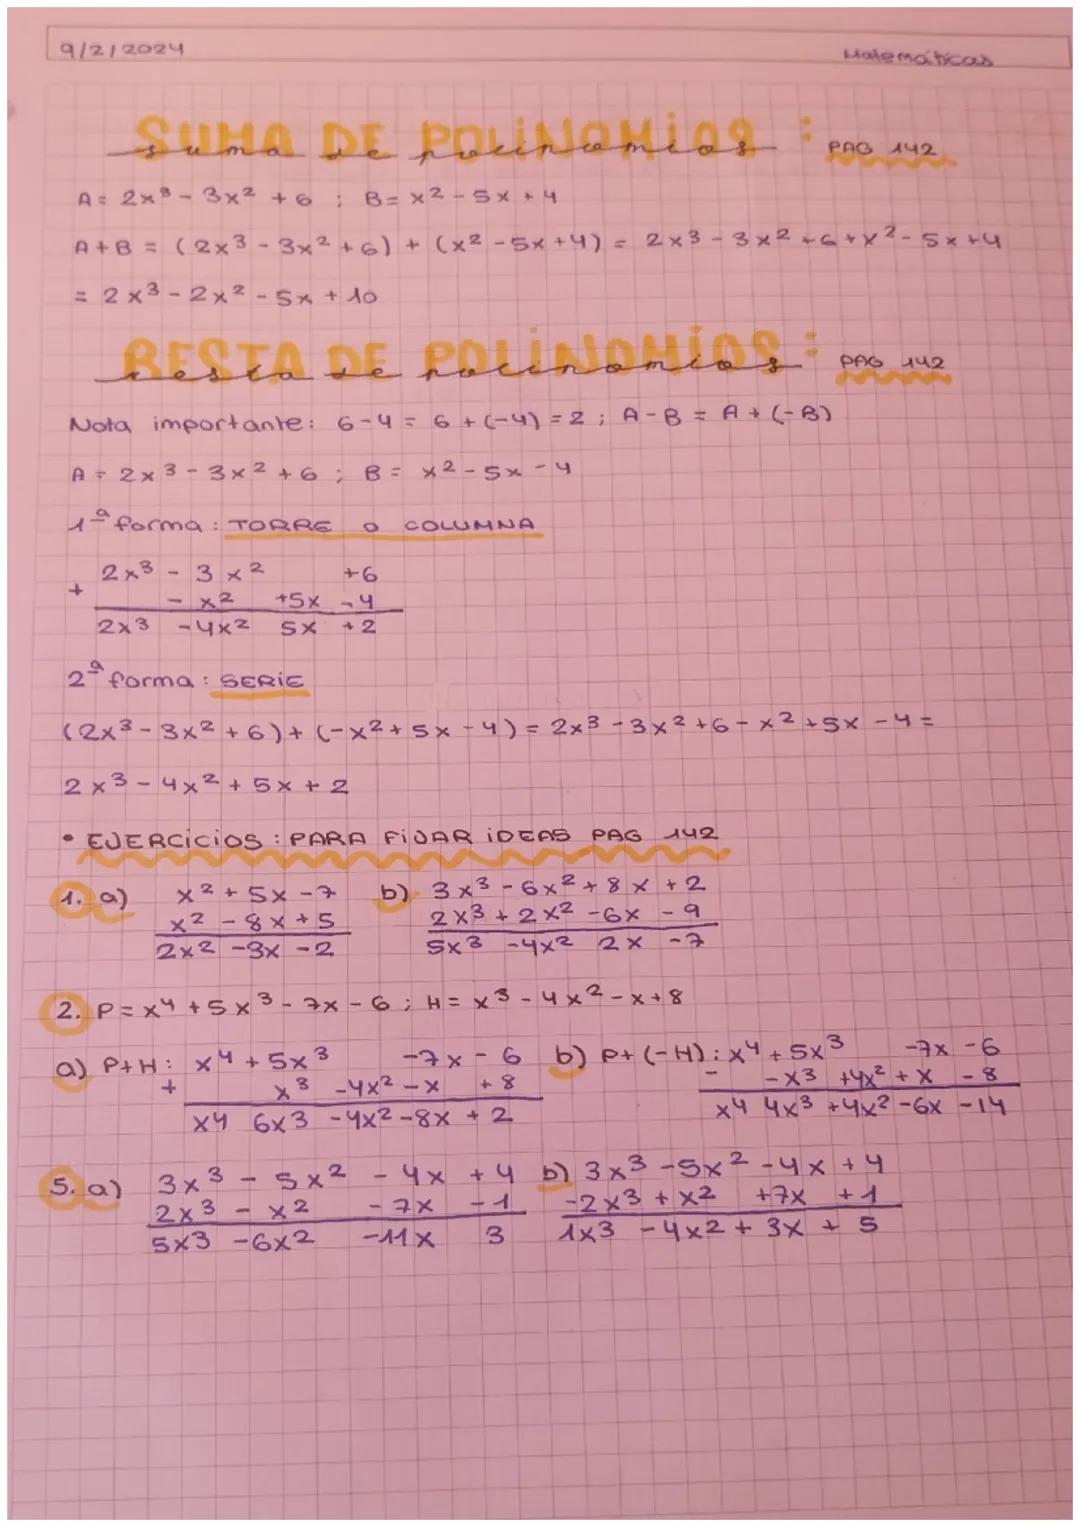 9/2/2024
Matemáticas
SUMA DE POLINOMIOS : PAG 142
suma de polinomios
A = 2x³ - 3x² + 6 ; B = x² - 5x + 4
A + B = (2x³ - 3x² + 6) + (x² - 5x + 4) = 2x³ - 3x² + 6 + x² - 5x + 4
= 2x³ - 2x² - 5x + 10
RESTA DE POLINOMIOS : PAG 142
resta de polinomios
Nota importante: 6 - 4 = 6 + (-4) = 2 ; A - B = A + (-B)
A = 2x³ - 3x² + 6 ; B = x² - 5x - 4
1ª forma : TORRE O COLUMNA
2x³ - 3x² +6
+ - x² +5x -4
2x³ -4x² 5x +2
2ª forma : SERIE
(2x³ - 3x² + 6) + (-x² + 5x - 4) = 2x³ - 3x² + 6 - x² + 5x - 4 =
2x³ - 4x² + 5x + 2
• EJERCICIOS : PARA FIJAR IDEAS PAG 142
1. a) x² + 5x - 7 b) 3x³ - 6x² + 8x + 2
x² - 8x + 5 2x³ + 2x² - 6x - 9
2x² - 3x - 2 5x³ - 4x² 2x - 7
2. P = x⁴ + 5x³ - 7x - 6 ; H = x³ - 4x² - x + 8
a) P+H : x⁴ + 5x³ - 7x - 6 b) P+(-H) : x⁴ + 5x³ - 7x - 6
+ x³ - 4x² - x + 8 - - x³ + 4x² + x - 8
x⁴ 6x³ - 4x² - 8x + 2 x⁴ 4x³ + 4x² - 6x - 14
5. a) 3x³ - 5x² - 4x + 4 b) 3x³ - 5x² - 4x + 4
2x³ - x² - 7x - 1 -2x³ + x² + 7x + 1
5x³ - 6x² - 11x 3 1x³ - 4x² + 3x + 5